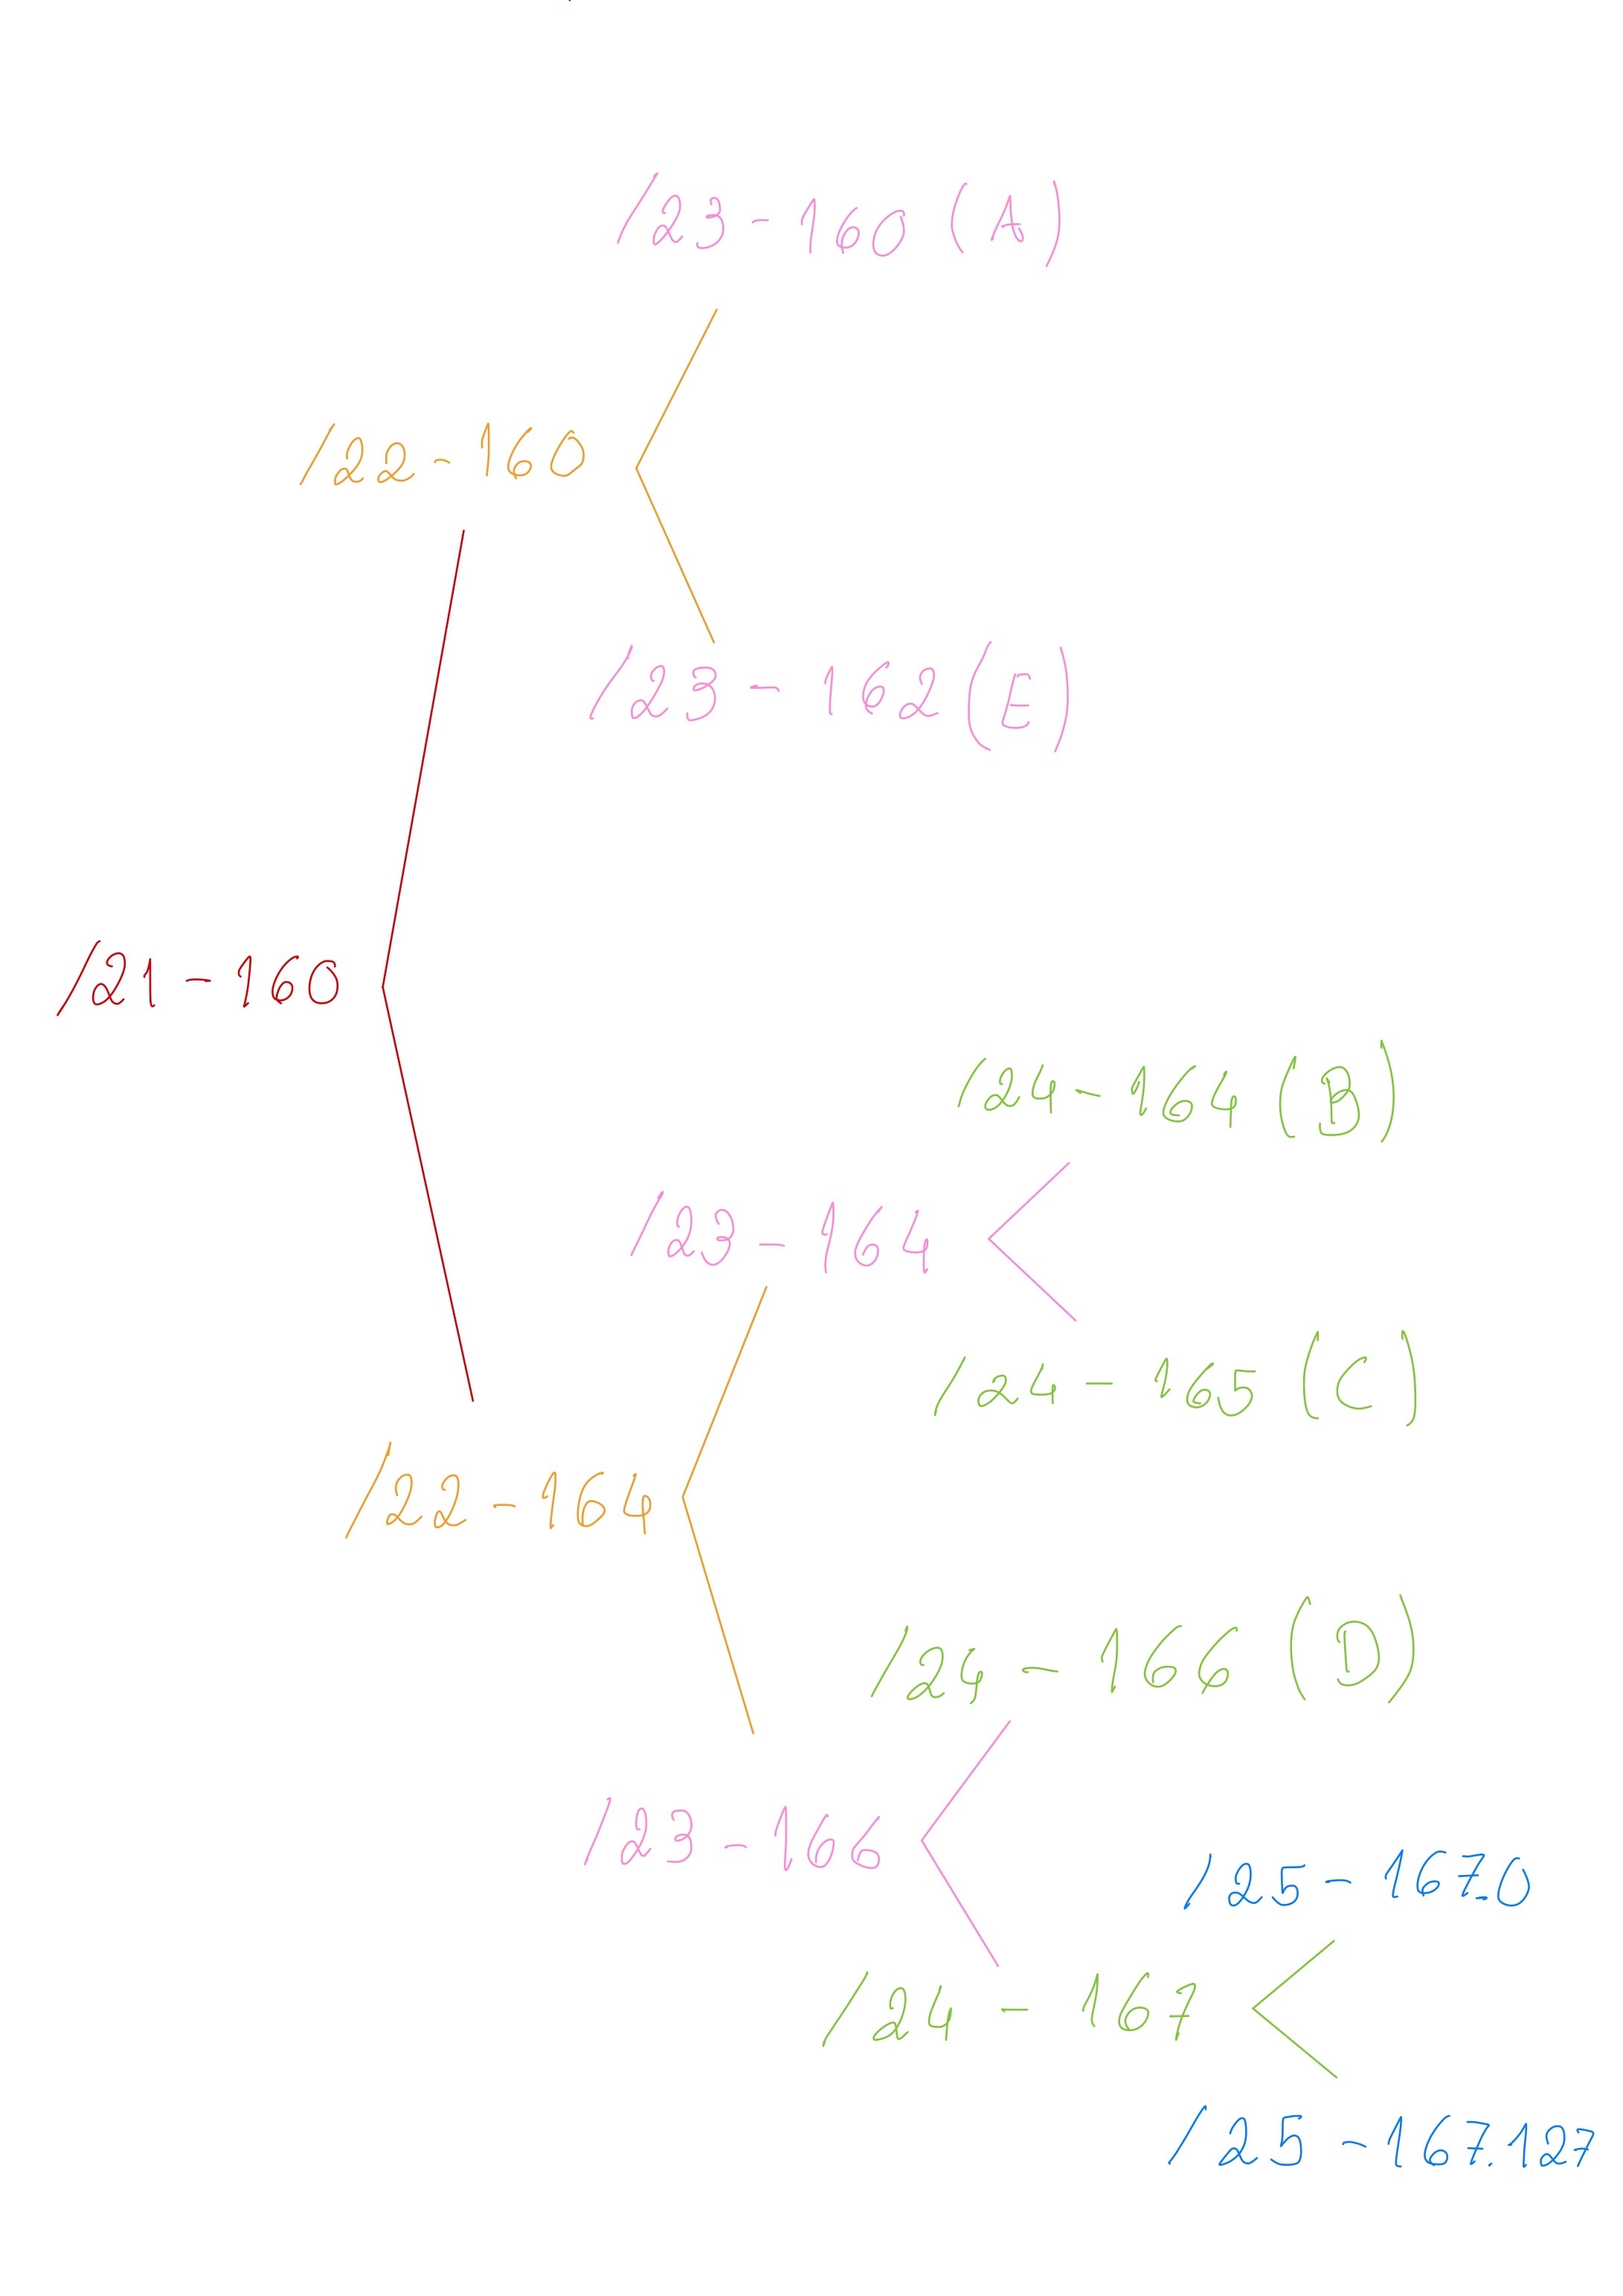 /23 - 160 (A)
/22 - 160
/23 - 162 (E)
/21 - 160
/24 - 164 (B)
/23 - 164
/24 - 165 (C)
/22 - 164
/24 - 166 (D)
/23 - 166
/25 - 167.0
/24 - 167
/25 - 167.127